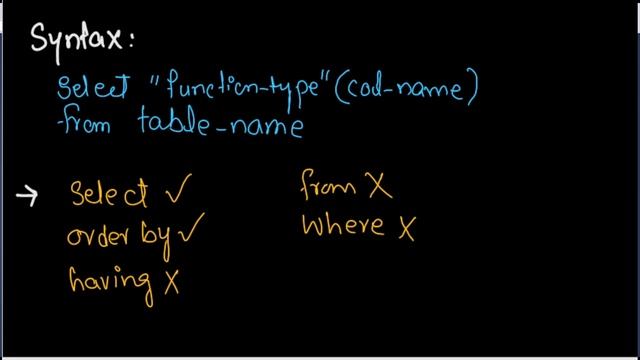 Syntax:
Select "function-type" (col-name)
from table-name
→ Select ✓
order by ✓
having X
from X
Where X